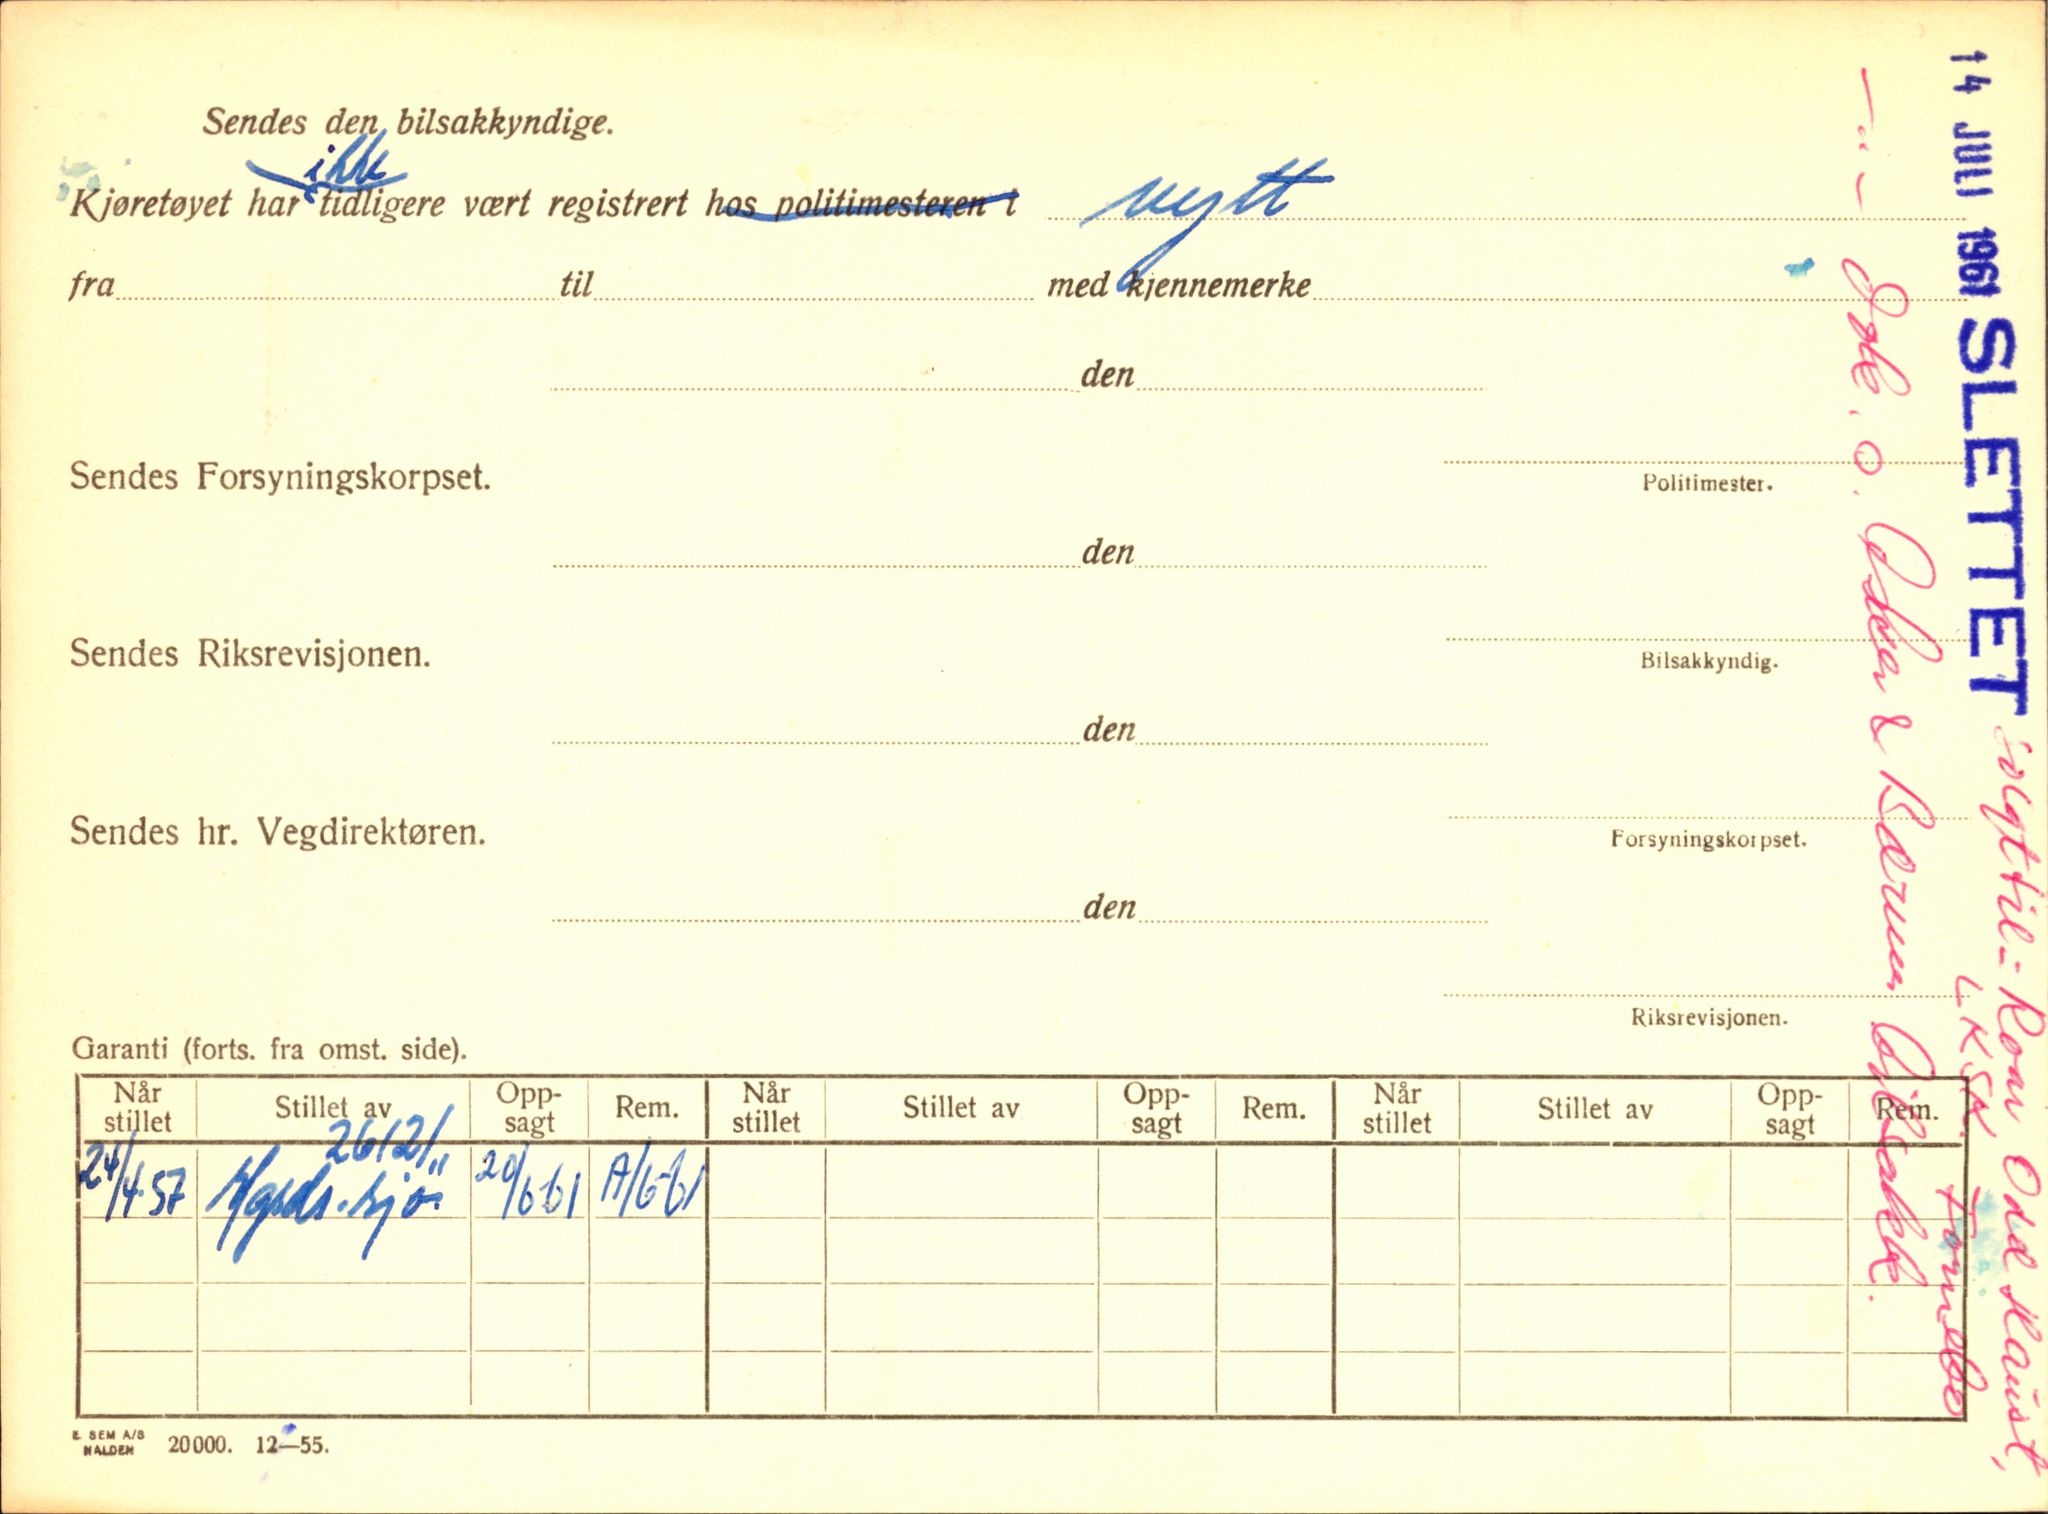 Sendes den bilsakkyndige.
ikke
Kjøretøyet har tidligere vært registrert hos politimesteren i nytt
fra til med kjennemerke
den
Politimester.
Sendes Forsyningskorpset.
den
Bilsakkyndig.
Sendes Riksrevisjonen.
den
Forsyningskorpset.
Sendes hr. Vegdirektøren.
den
Riksrevisjonen.
Garanti (forts. fra omst. side).
Når stillet Stillet av Opp-sagt Rem. Når stillet Stillet av Opp-sagt Rem. Når stillet Stillet av Opp-sagt Rem.
26121
24/4-57 20/6-61 A/6-61
E. SEM A/S
HALDEN 20000. 12—55.
14 JULI 1961 SLETTET solgt til: Roar Odd
LKSK I Fornebo
— " — o. Asker & Bærum Bilsakk.